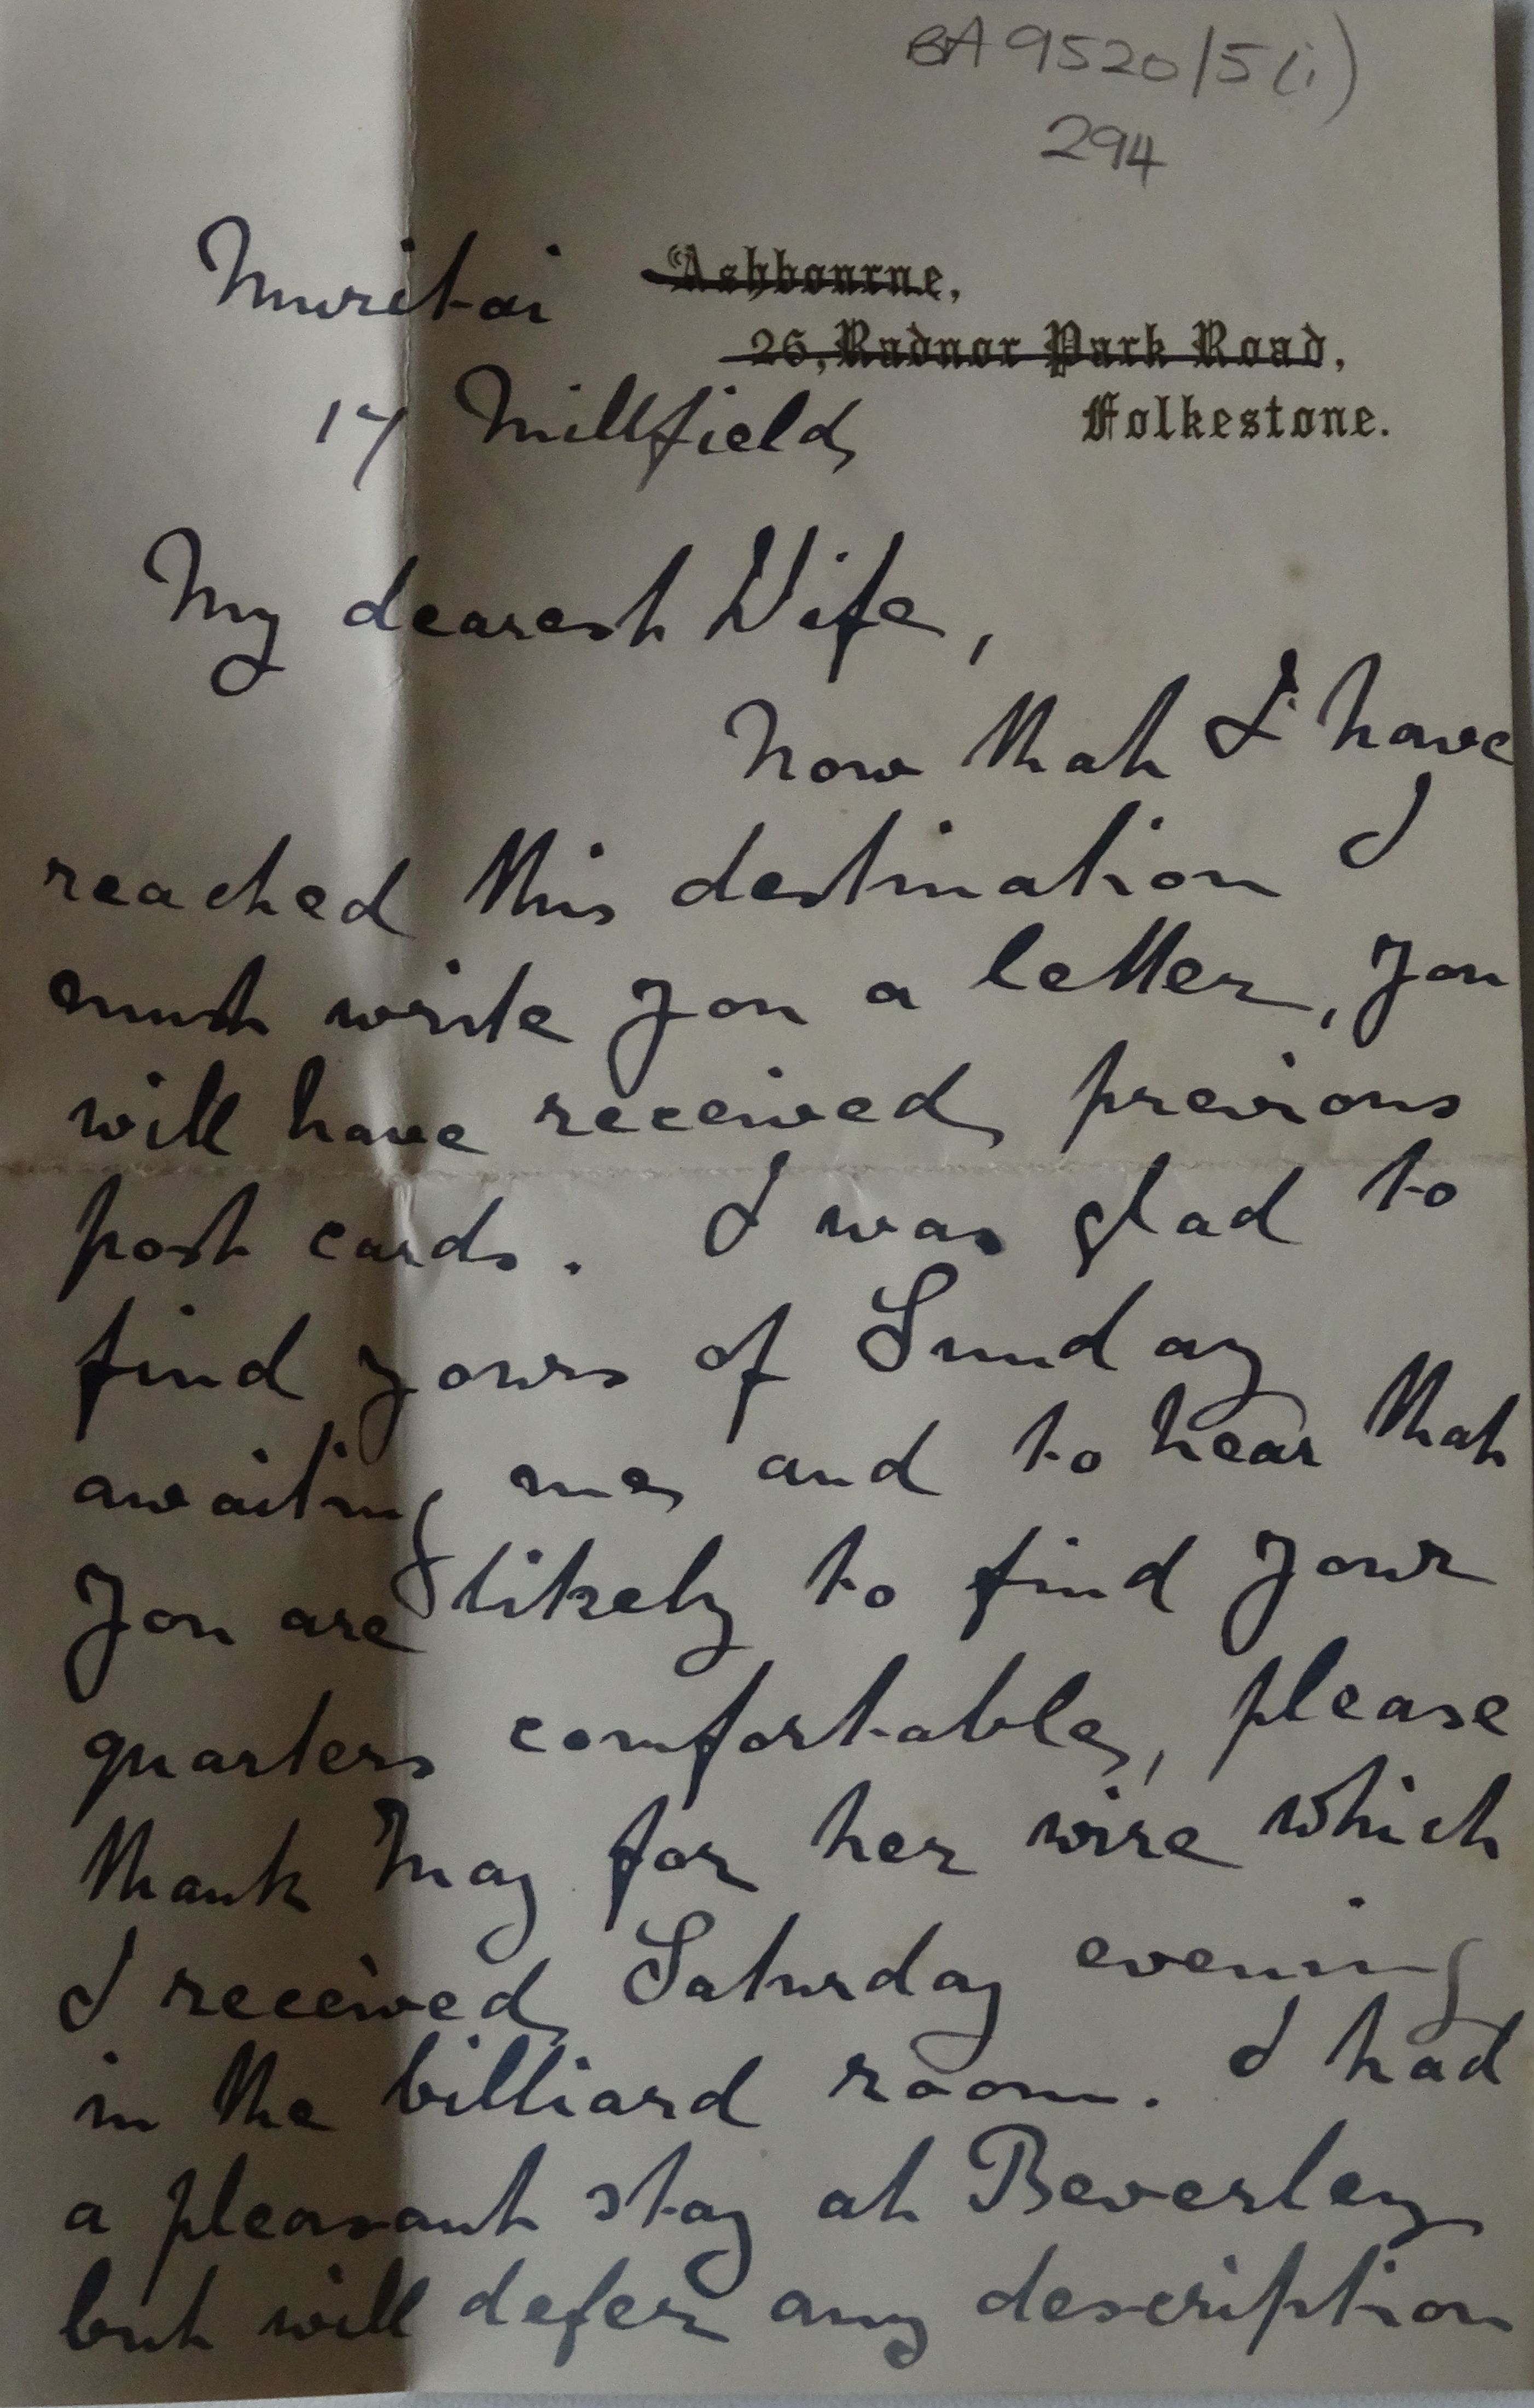 BA 9520/5(i)
294
Muritai Ashbourne,
26, Radnor Park Road,
17 Millfield Folkestone.
My dearest Wife,
Now that I have
reached this destination I
must write you a letter, you
will have received previous
post cards. I was glad to
find yours of Sunday
awaiting me and to hear that
you are likely to find your
quarters comfortable, please
thank May for her wire which
I received Saturday evening
in the billiard room. I had
a pleasant stay at Beverley
but will defer any description